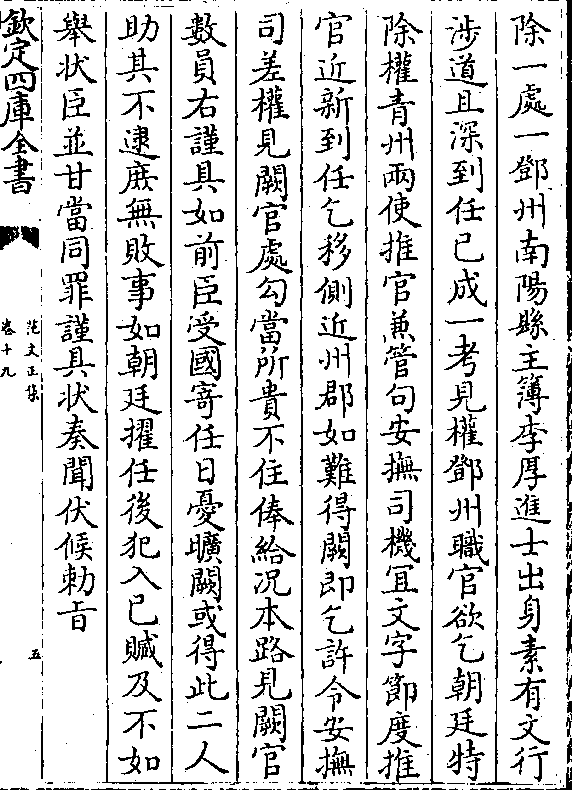 除一處一鄧州南陽縣主簿李厚進士出身素有文行
涉道且深到任已成一考見權鄧州職官欲乞朝廷特
除權青州兩使推官兼管句安撫司機宜文字節度推
官近新到任乞移側近州郡如難得闕即乞許令安撫
司差權見闕官處勾當所貴不住俸給况本路見闕官
數員右謹具如前臣受國寄任日憂曠闕或得此二人
助其不逮庶無敗事如朝廷擢任後犯入已贓及不如
舉狀臣並甘當同罪謹具狀奏聞伏候勅旨
欽定四庫全書
范文正集
卷十九
五